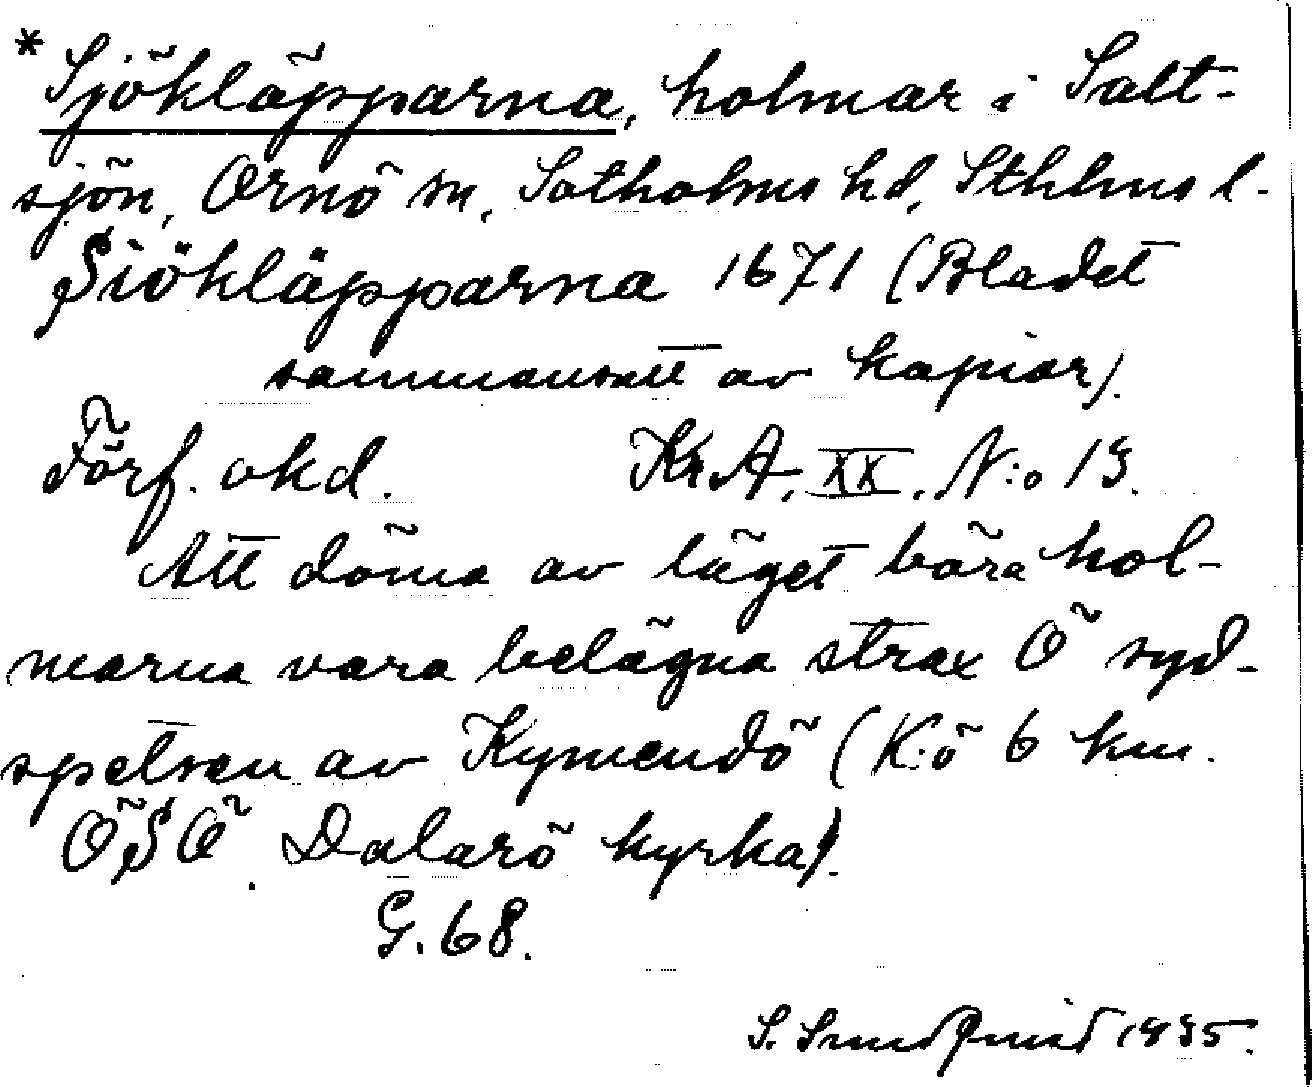 * Sjökläpparna, holmar i Salt-
sjön, Ornö sn, Sotholms hd, Sthlms l.
Siökläpparna 1671 (Bladet
sammansatt av kopior).
Förf. okd. Kr.A. XX. N:o 13.
Att döma av läget böra hol-
marna vara belägna strax Ö syd-
spetsen av Kymendö (K:ö 6 km.
ÖSÖ. Dalarö kyrka).
G. 68.
S. Sundquist 1935.